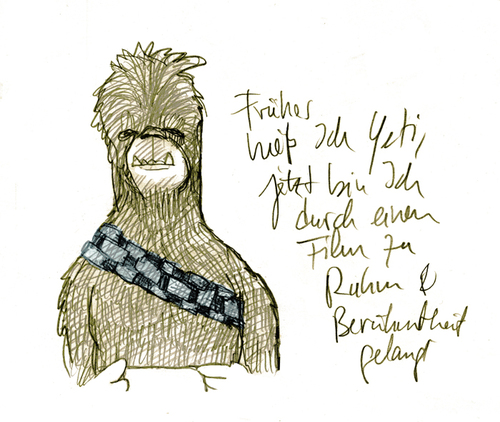 Früher
hieß Ich Yeti,
jetzt bin Ich
durch einen
Film zu
Ruhm &
Berühmtheit
gelangt